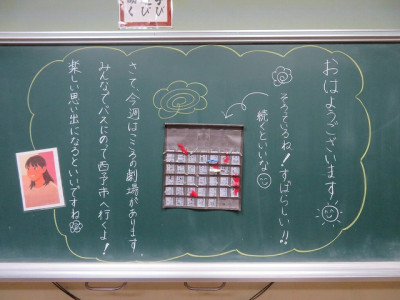 おはようございます!
そろっているね!すばらしい!!
続くといいな
さて、今週はこころの劇場があります。
みんなでバスにのって西予市へ行くよ!
楽しい思い出になるといいですね